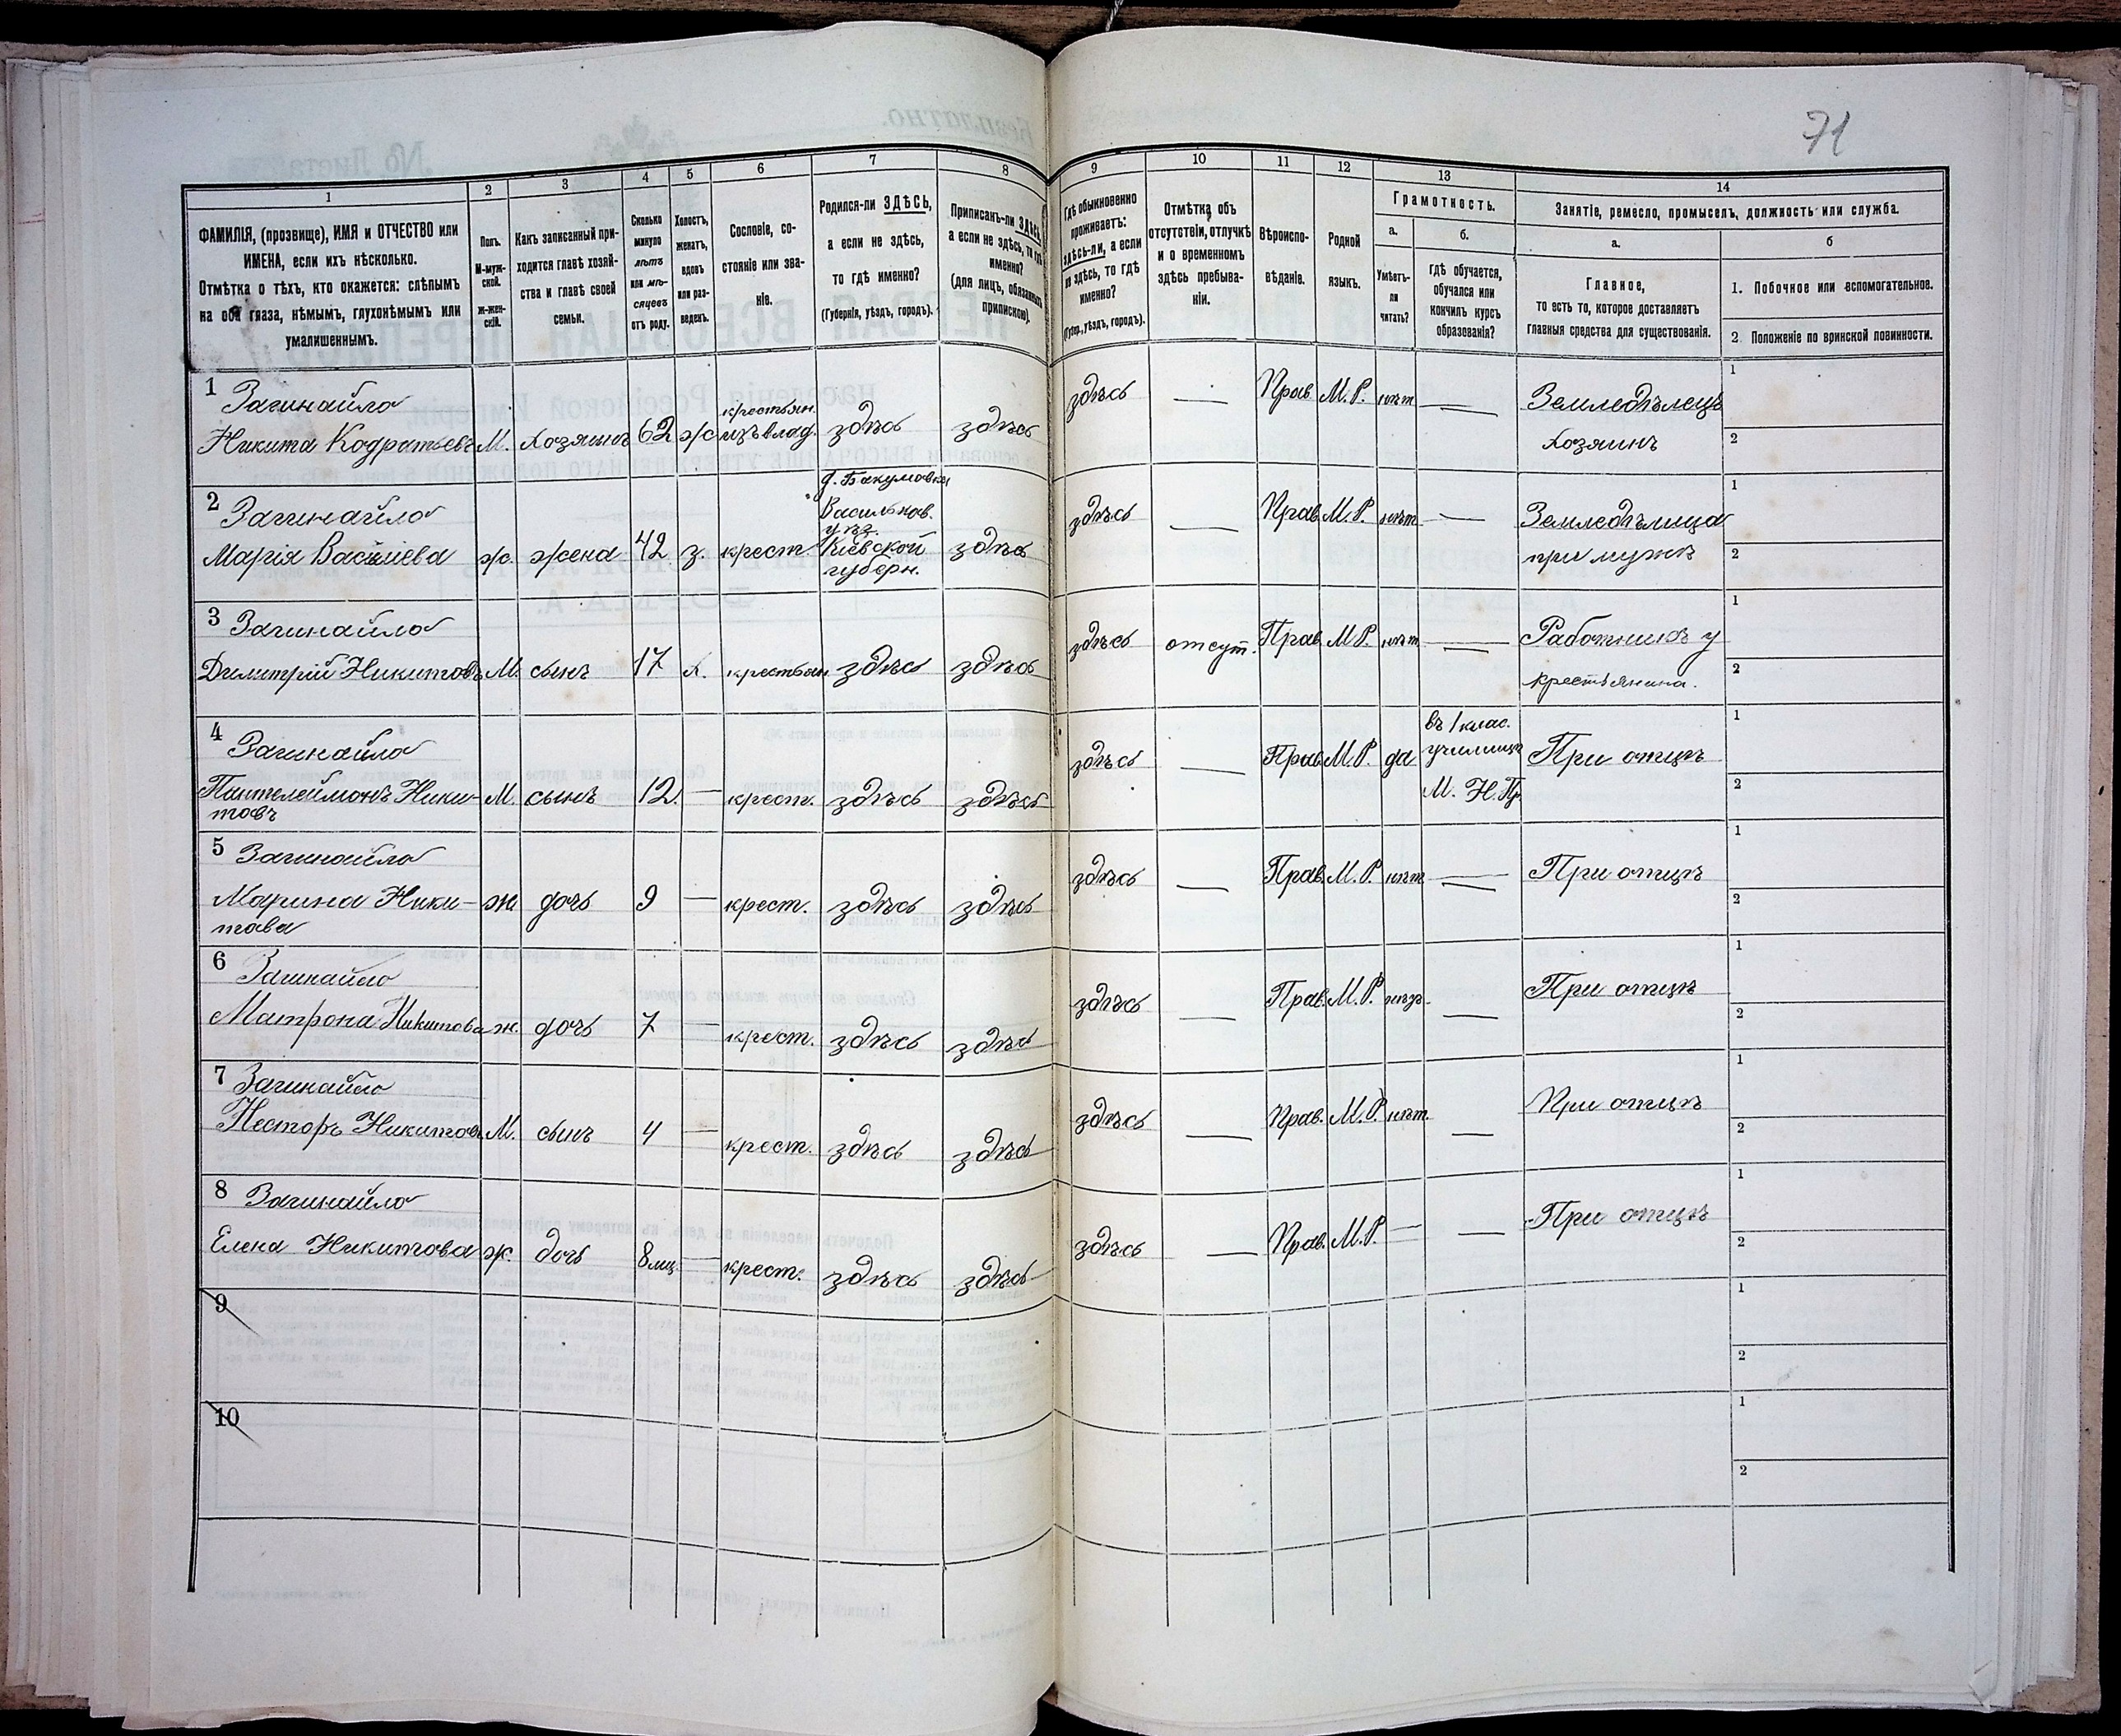 71
1 2 3 4 5 6 7 8 9 10 11 12 13 14
ФАМИЛІЯ, (прозвище), ИМЯ и ОТЧЕСТВО или
ИМЕНА, если ихъ нѣсколько.
Отмѣтка о тѣхъ, кто окажется: слѣпымъ
на оба глаза, нѣмымъ, глухонѣмымъ или
умалишеннымъ.
Полъ.
М-муж-
ской.
ж-жен-
скій.
Какъ записанный при-
ходится главѣ хозяй-
ства и главѣ своей
семьи.
Сколько
минуло
лѣтъ
или мѣ-
сяцевъ
отъ роду.
Холостъ,
женатъ,
вдовъ
или раз-
веденъ.
Сословіе, со-
стояніе или зва-
ніе.
Родился-ли ЗДѢСЬ,
а если не здѣсь,
то гдѣ именно?
(Губернія, уѣздъ, городъ).
Приписанъ-ли ЗДѢСЬ,
а если не здѣсь, то гдѣ
именно?
(для лицъ, обязанныхъ
припискою).
Гдѣ обыкновенно
проживаетъ:
здѣсь-ли, а если
не здѣсь, то гдѣ
именно?
(Губер., уѣздъ, городъ).
Отмѣтка объ
отсутствіи, отлучкѣ
и о временномъ
здѣсь пребыва-
ніи.
Вѣроиспо-
вѣданіе.
Родной
языкъ.
Грамотность.
а.
Умѣетъ-
ли
читать?
б.
Гдѣ обучается,
обучался или
кончилъ курсъ
образованія?
Занятіе, ремесло, промыселъ, должность или служба.
а.
Главное,
то есть то, которое доставляетъ
главныя средства для существованія.
б
1. Побочное или вспомогательное.
2. Положеніе по воинской повинности.
1 Загинайло
Никита Кодратьевъ М. Хозяинъ 62 ж
крестьян.
изъ влад. здѣсь здѣсь здѣсь — Прав. М.Р. нѣт — Земледѣлецъ
хозяинъ
1
2
2 Загинайло
Марія Василіева ж. жена 42 з. крест.
д. Бакумовка
Васильков.
уѣз.
Кіевской
губерн.
здѣсь здѣсь — Прав. М.Р. нѣт — Земледѣлица
при мужѣ
1
2
3 Загинайло
Димитрій Никитовъ М. сынъ 17 х. крестьян здѣсь здѣсь здѣсь отсут. Прав. М.Р. нѣт — Работникъ у
крестьянина.
1
2
4 Загинайло
Пантелеймонъ Ники-
товъ
М. сынъ 12. — крест. здѣсь здѣсь здѣсь — Прав. М.Р. да
въ 1 клас.
училищѣ
М. Н. Пр.
При отцѣ
1
2
5 Загинайло
Марина Ники-
това
ж дочь 9 — крест. здѣсь здѣсь здѣсь — Прав. М.Р. нѣт — При отцѣ
1
2
6 Загинайло
Матрона Никитова ж. дочь 7 — крест. здѣсь здѣсь здѣсь — Прав. М.Р. нѣт. — При отцѣ
1
2
7 Загинайло
Несторъ Никитовъ М. сынъ 4 — крест. здѣсь здѣсь здѣсь — Прав. М.Р. нѣт. — При отцѣ
1
2
8 Загинайло
Елена Никитова ж. дочь 8 мц. — крест. здѣсь здѣсь здѣсь — Прав. М.Р. — — При отцѣ
1
2
9
1
2
10
1
2